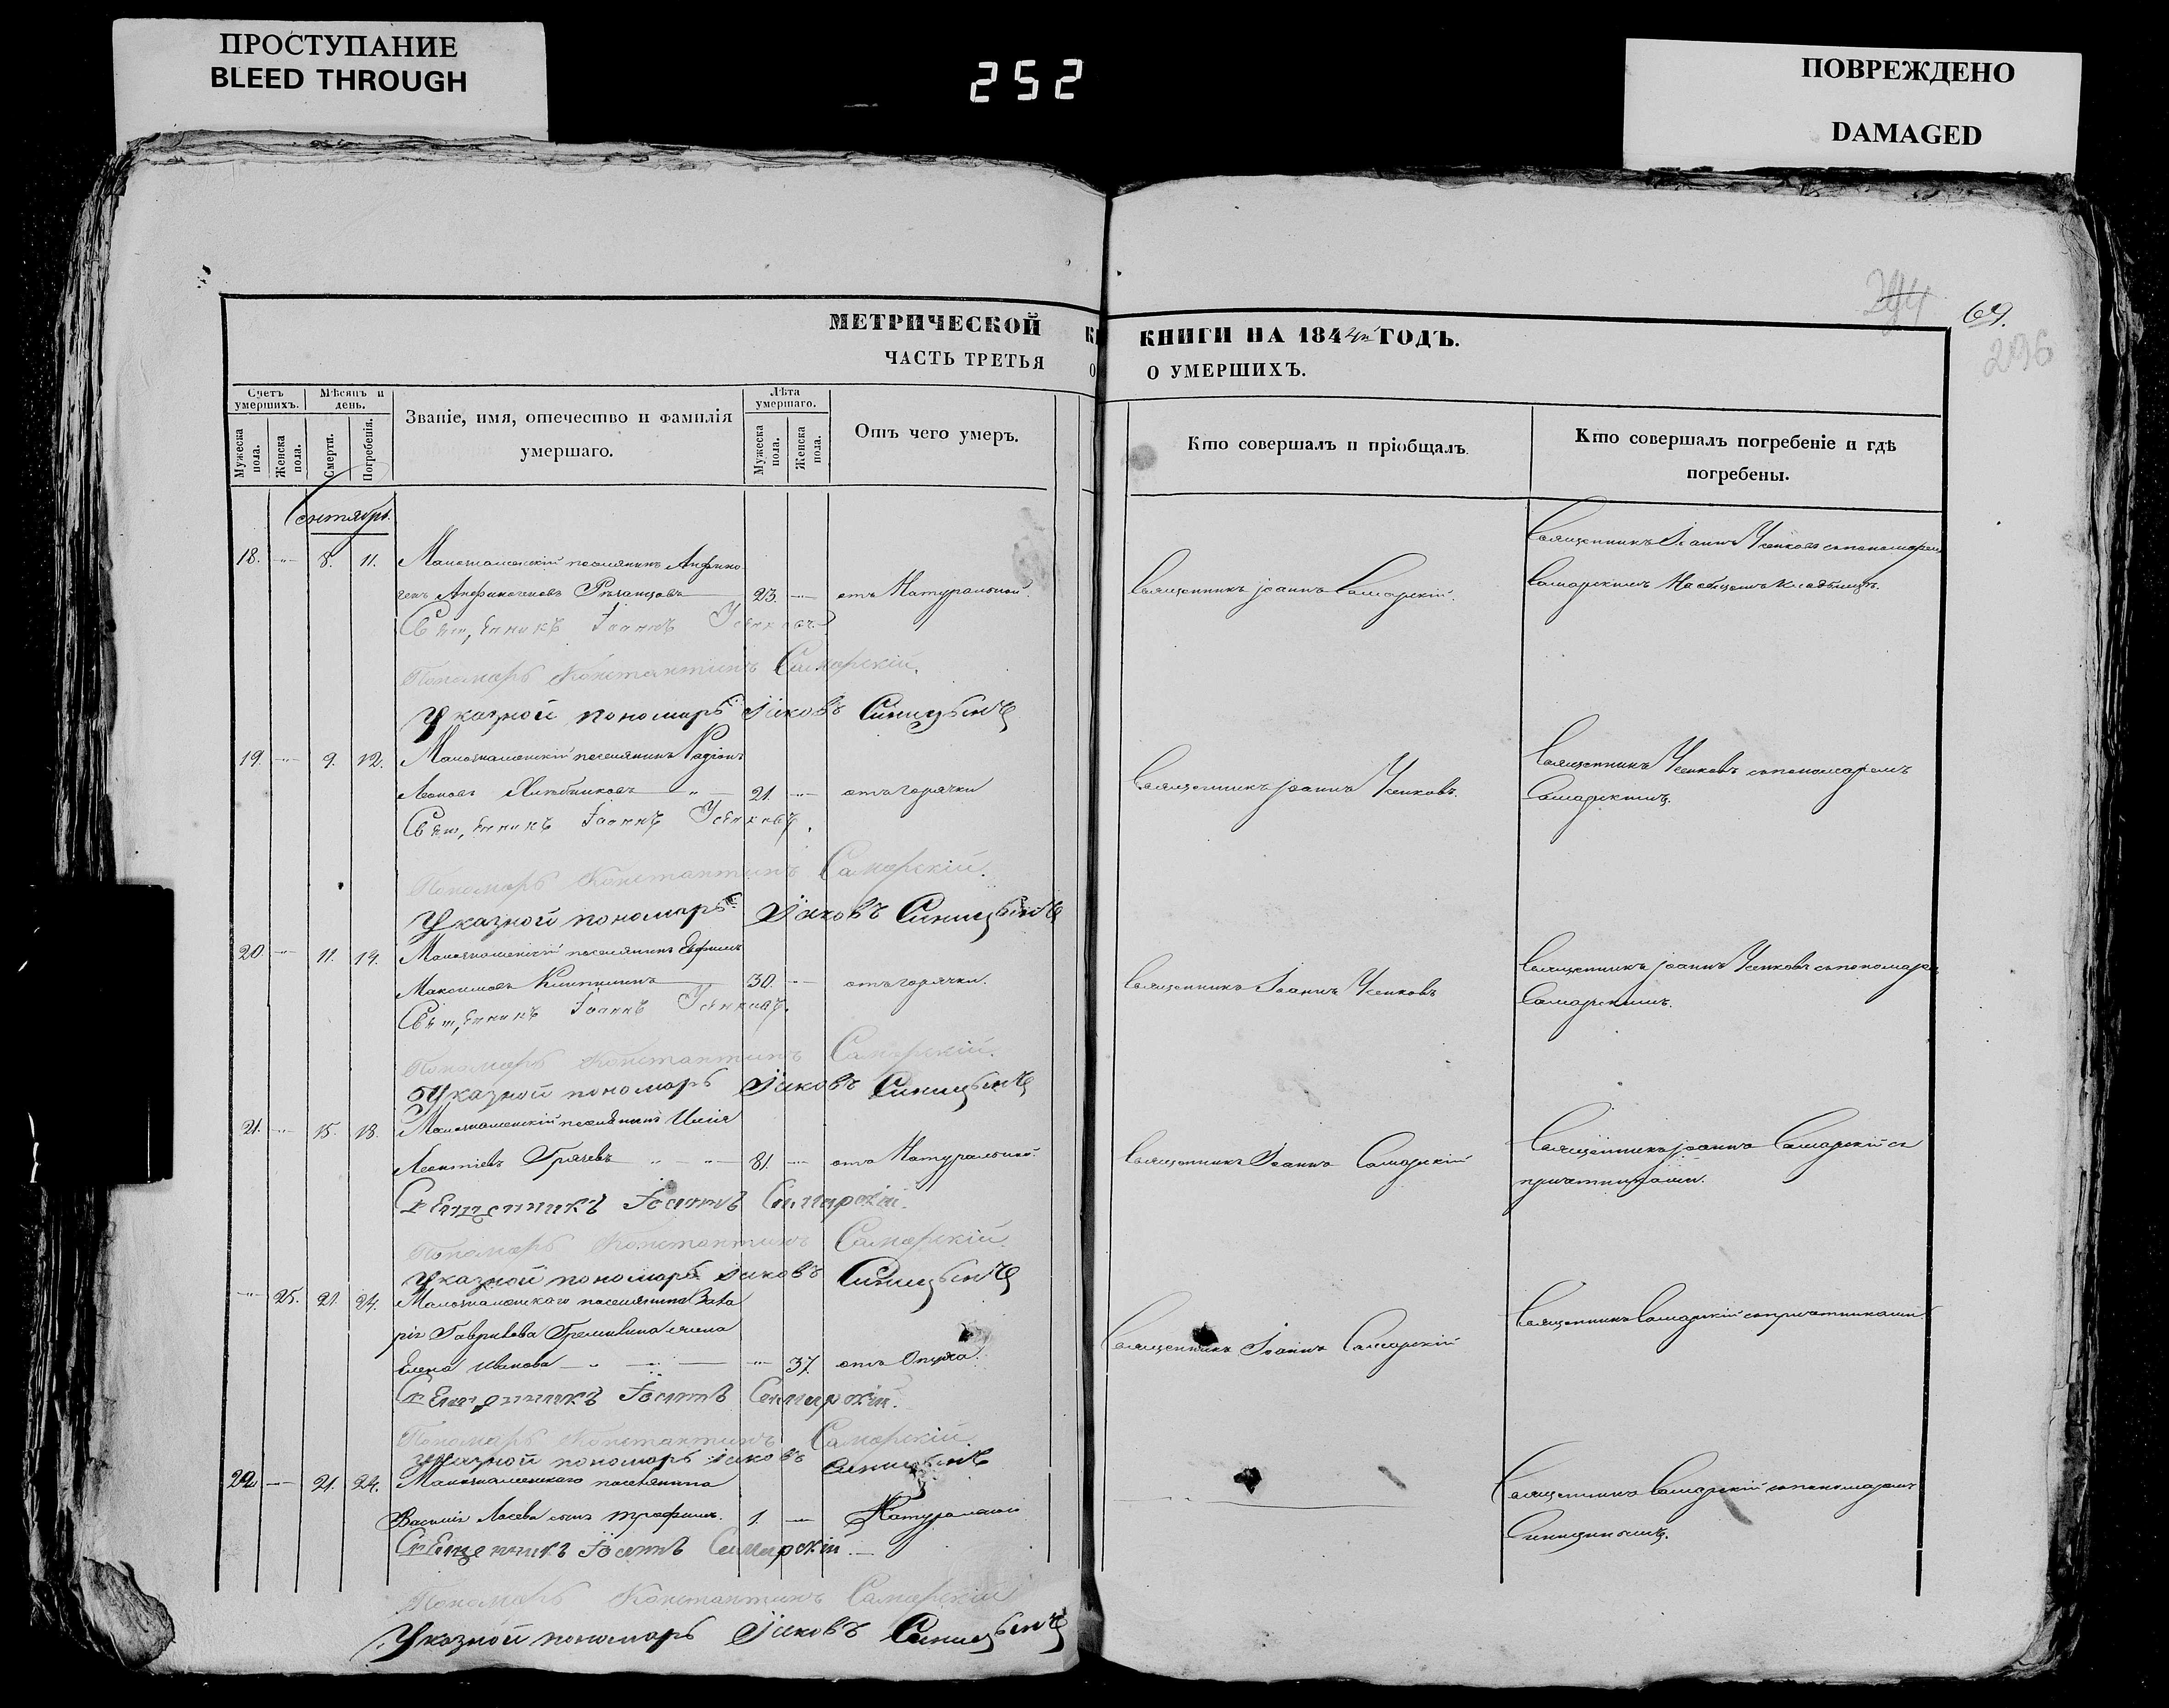 ПРОСТУПАНИЕ
BLEED THROUGH
252
ПОВРЕЖДЕНО
DAMAGED
294
69.
296
МЕТРИЧЕСКОЙ
ЧАСТЬ ТРЕТЬЯ
КНИГИ НА 1844й ГОДЪ.
О УМЕРШИХЪ.
Счетъ умершихъ.
Мужеска пола.
Женска пола.
Мѣсяцъ и день.
Смерти.
Погребенія.
Званіе, имя, отечество и фамилія
умершаго.
Лѣта умершаго.
Мужеска пола.
Женска пола.
Отъ чего умеръ.
Кто совершалъ и пріобщалъ.
Кто совершалъ погребеніе и гдѣ
погребены.
Сентябрь.
18. 8. 11. поселянинъ
23. отъ Натуральной.
Священникъ Іоаннъ Самарскій.
Священникъ Іоаннъ Усенковъ съ пономаремъ
Самарскимъ На общемъ кладбищѣ.
Священникъ Іоаннъ Усенковъ
Пономарь Константинъ Самарскій.
Указной пономарь Іаковъ Синицынъ
19. 9. 12. поселянинъ Радіонъ
Леоновъ Хлѣбниковъ 21. отъ горячки
Священникъ Іоаннъ Усенковъ.
Священникъ Усенковъ съ пономаремъ
Самарскимъ.
Священникъ Іоаннъ Усенковъ.
Пономарь Константинъ Самарскій.
Указной пономарь Іаковъ Синицынъ
20. 11. 14. поселянинъ Ефимъ
Максимовъ 30. отъ горячки.
Священникъ Іоаннъ Усенковъ
Священникъ Іоаннъ Усенковъ съ пономаремъ
Самарскимъ.
Священникъ Іоаннъ Усенковъ.
Пономарь Константинъ Самарскій.
Указной пономарь Іаковъ Синицынъ
21. 15. 18. поселянинъ Илія
Леонтіевъ Грачевъ 81. отъ Натуральной.
Священникъ Іоаннъ Самарскій
Священникъ Іоаннъ Самарскій съ
причетниками.
Священникъ Іоаннъ Самарскій.
Пономарь Константинъ Самарскій.
Указной пономарь Іаковъ Синицынъ
25. 21. 24. поселянина
Гаврилова жена
Елена Иванова 37. отъ
Священникъ Іоаннъ Самарскій
Священникъ Самарскій съ причетниками.
Священникъ Іоаннъ Самарскій.
Пономарь Константинъ Самарскій
Указной пономарь Іаковъ Синицынъ
22. 21. 24. поселянина
Василія Лосева сынъ Трофимъ. 1. Натуральной
Священникъ Самарскій съ пономаремъ
Синицинымъ.
Священникъ Іоаннъ Самарскій.
Пономарь Константинъ Самарскій
Указной пономарь Іаковъ Синицынъ